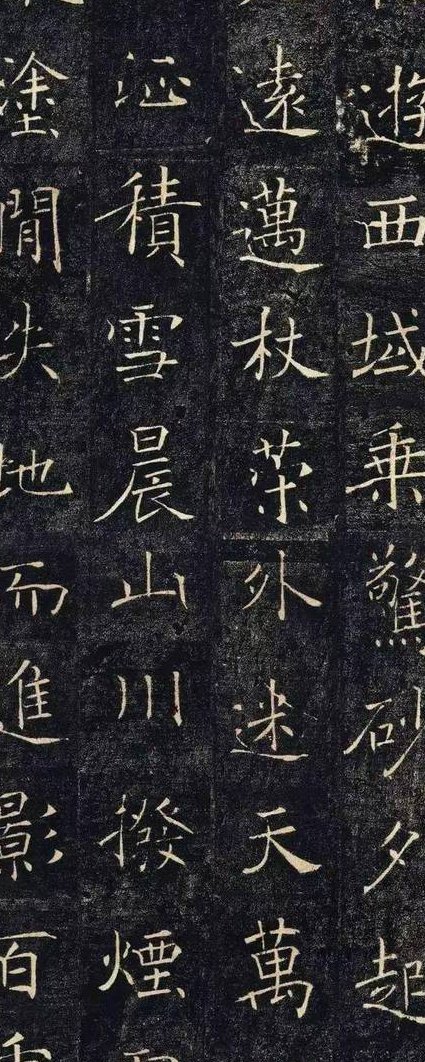 遊西域乘驚砂夕起
遠邁杖策外迷天萬
征積雪晨山川撥煙
塗間失地而進影百